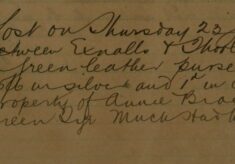 Lost on Thursday 23
between Exnalls & Thorl
green leather purse
in silver and 1d in
property of Annie Bra
Green Tye Much Had